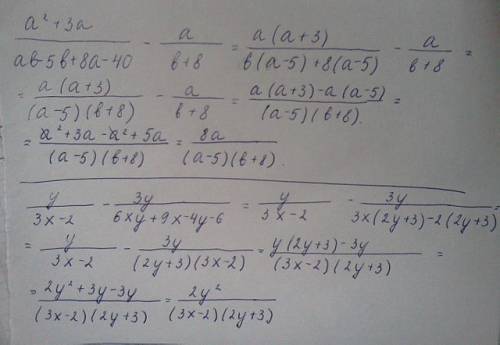 (a² + 3a)/(ab-5b+8a-40) - a/(b+8) = a(a+3)/(b(a-5)+8(a-5)) - a/(b+8) =
= a(a+3)/((a-5)(b+8)) - a/(b+8) = (a(a+3)-a(a-5))/((a-5)(b+8)). =
= (a²+3a-a²+5a)/((a-5)(b+8)) = 8a/((a-5)(b+8)).
y/(3x-2) - 3y/(6xy+9x-4y-6) = y/(3x-2) - 3y/(3x(2y+3)-2(2y+3)) =
= y/(3x-2) - 3y/((2y+3)(3x-2)) = (y(2y+3)-3y)/((3x-2)(2y+3)) =
= (2y²+3y-3y)/((3x-2)(2y+3)) = 2y²/((3x-2)(2y+3))